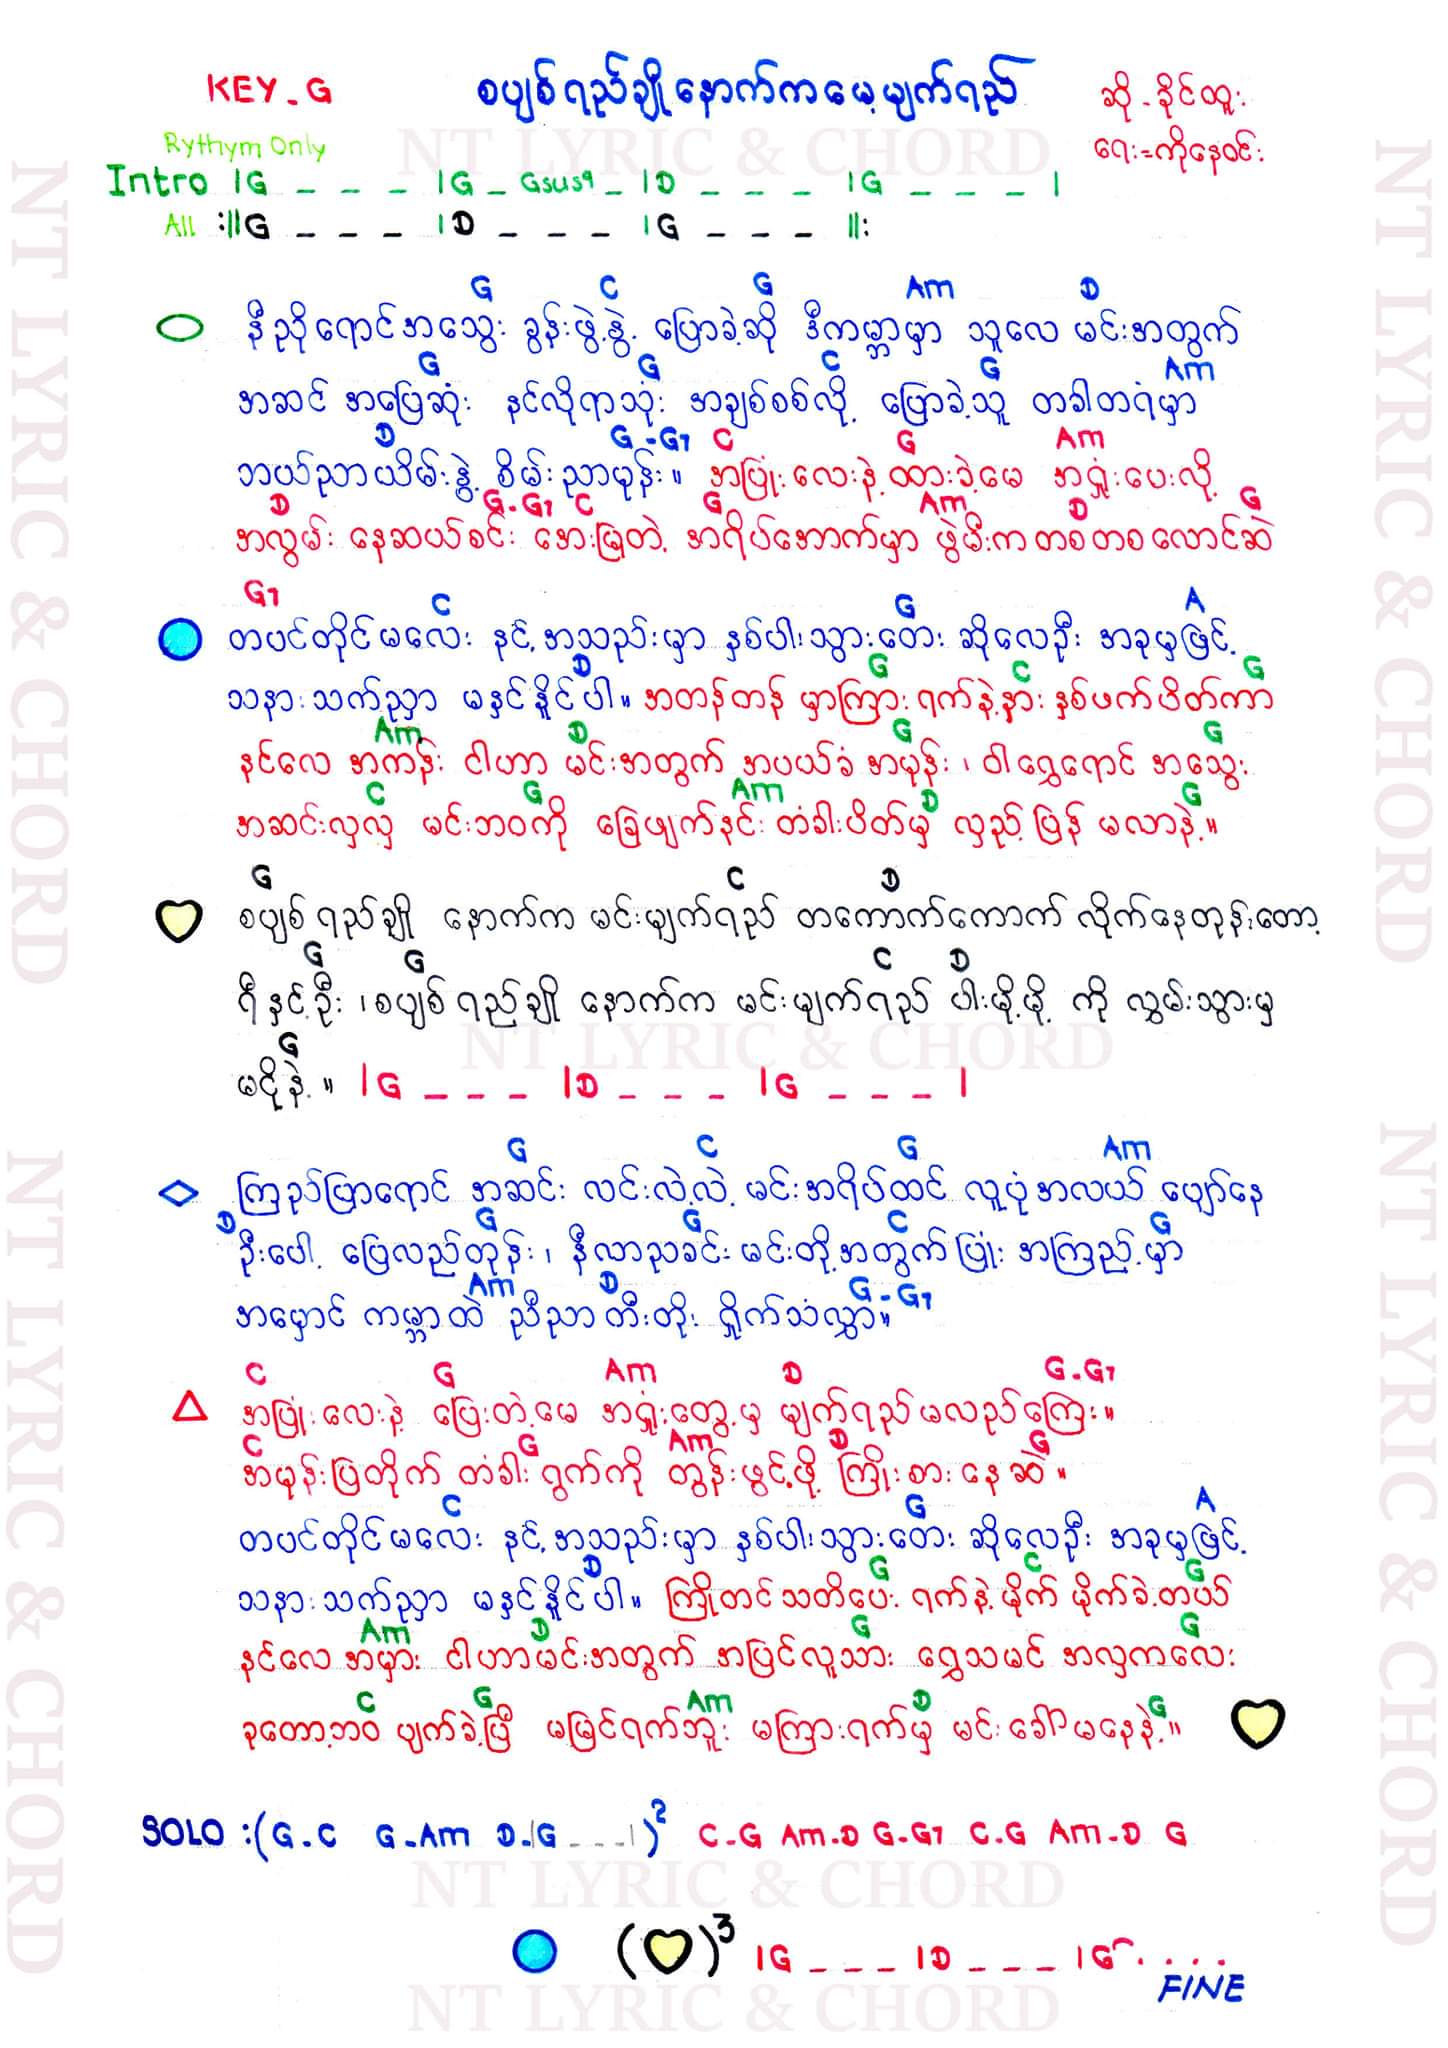 KEY - G
စပျစ်ရည်ချိုနောက်ကမေ့မျက်ရည်
ဆို - ခိုင်ထူး
ရေး = ကိုနေဝင်း
NT LYRIC & CHORD
Rythym Only
Intro |G _ _ _ |G _ Gsus9 _ |D _ _ _ |G _ _ _ |
All :||G _ _ _ |D _ _ _ |G _ _ _ ||:
G C G Am D
နီညိုရောင်အသွေး ခွန်းဖွဲ့နွဲ့ ပြောခဲ့ဆို ဒီကမ္ဘာမှာ သူလေ မင်းအတွက်
G G C G Am
အဆင် အပြေဆုံး နင်လိုရာသုံး အချစ်စစ်လို့ ပြောခဲ့သူ တခါတရံမှာ
D G - G7 C G Am
ဘယ်ညာယိမ်းနွဲ့ စိမ်းညာမုန်း။ အပြုံးလေးနဲ့ ထားခဲ့မေ အရှုံးပေးလို့
D G - G7 C G Am D G
အလွမ်း နေဆယ်စင်း အေးမြတဲ့ အရိပ်အောက်မှာ ဖွဲမီးက တစတစ လောင်ဆဲ
G7 C G A
တပင်တိုင်မလေး နင့်အသည်းမှာ နှစ်ပါးသွားတေး ဆိုလေဦး အခုမှဖြင့်
D G C G
သနားသက်ညှာ မနှင်နိူင်ပါ။ အတန်တန် မှာကြားရက်နဲ့နား နှစ်ဖက်ပိတ်ကာ
Am D G G
နင်လေ အကန်း ငါဟာ မင်းအတွက် အပယ်ခံ အမုန်း ၊ ဝါရွှေရောင် အသွေး
C G Am D G
အဆင်းလှလှ မင်းဘဝကို ခြေဖျက်နင်း တံခါးပိတ်မှ လှည့်ပြန် မလာနဲ့။
G C D
စပျစ်ရည်ချို နောက်က မင်းမျက်ရည် တကောက်ကောက် လိုက်နေတုန်းတော့
G G C D
ရီနှင့်ဦး ၊ စပျစ်ရည်ချို နောက်က မင်းမျက်ရည် ပါးမို့မို့ ကို လွှမ်းသွားမှ
NT LYRIC & CHORD
G
မငိုနဲ့ ။ |G _ _ _ |D _ _ _ |G _ _ _ |
G C G Am
ကြည်ပြာရောင် အဆင်း လင်းလဲ့လဲ့ မင်းအရိပ်ထင် လူပုံအလယ် ပျော်နေ
D G G C G
ဦးပေါ့ ပြေလည်တုန်း ၊ နီလာညခင်း မင်းတို့အတွက် ပြုံး အကြည့်မှာ
Am D G - G7
အမှောင် ကမ္ဘာထဲ ညီညာ တီးတိုး ရှိုက်သံလွှာ။
C G Am D G - G7
အပြုံးလေးနဲ့ ပြေးတဲ့မေ အရှုံးတွေ့မှ မျက်ရည်မလည်ကြေး။
C G Am D G
အမုန်းပြတိုက် တံခါးရွက်ကို တွန်းဖွင့်ဖို့ ကြိုးစားနေဆဲ ။
C G A
တပင်တိုင်မလေး နင့်အသည်းမှာ နှစ်ပါးသွားတေး ဆိုလေဦး အခုမှဖြင့်
D G C G
သနားသက်ညှာ မနှင်နိူင်ပါ။ ကြိုတင်သတိပေး ရက်နဲ့ မိုက် မိုက်ခဲ့တယ်
Am D G G
နင်လေအမှား ငါဟာမင်းအတွက် အပြင်လူသား ရွှေသမင် အလှကလေး
C G Am D G
ခုတော့ဘဝ ပျက်ခဲ့ပြီ မမြင်ရက်ဘူး မကြားရက်မှ မင်းခေါ်မနေနဲ့။
SOLO :(G - C G - Am D - |G _ _ _ |)2 C - G Am - D G - G7 C - G Am - D G
NT LYRIC & CHORD
( )3 |G _ _ _ |D _ _ _ |G . . . .
FINE
NT LYRIC & CHORD
NT LYRIC & CHORD
NT LYRIC & CHORD
NT LYRIC & CHORD
NT LYRIC & CHORD